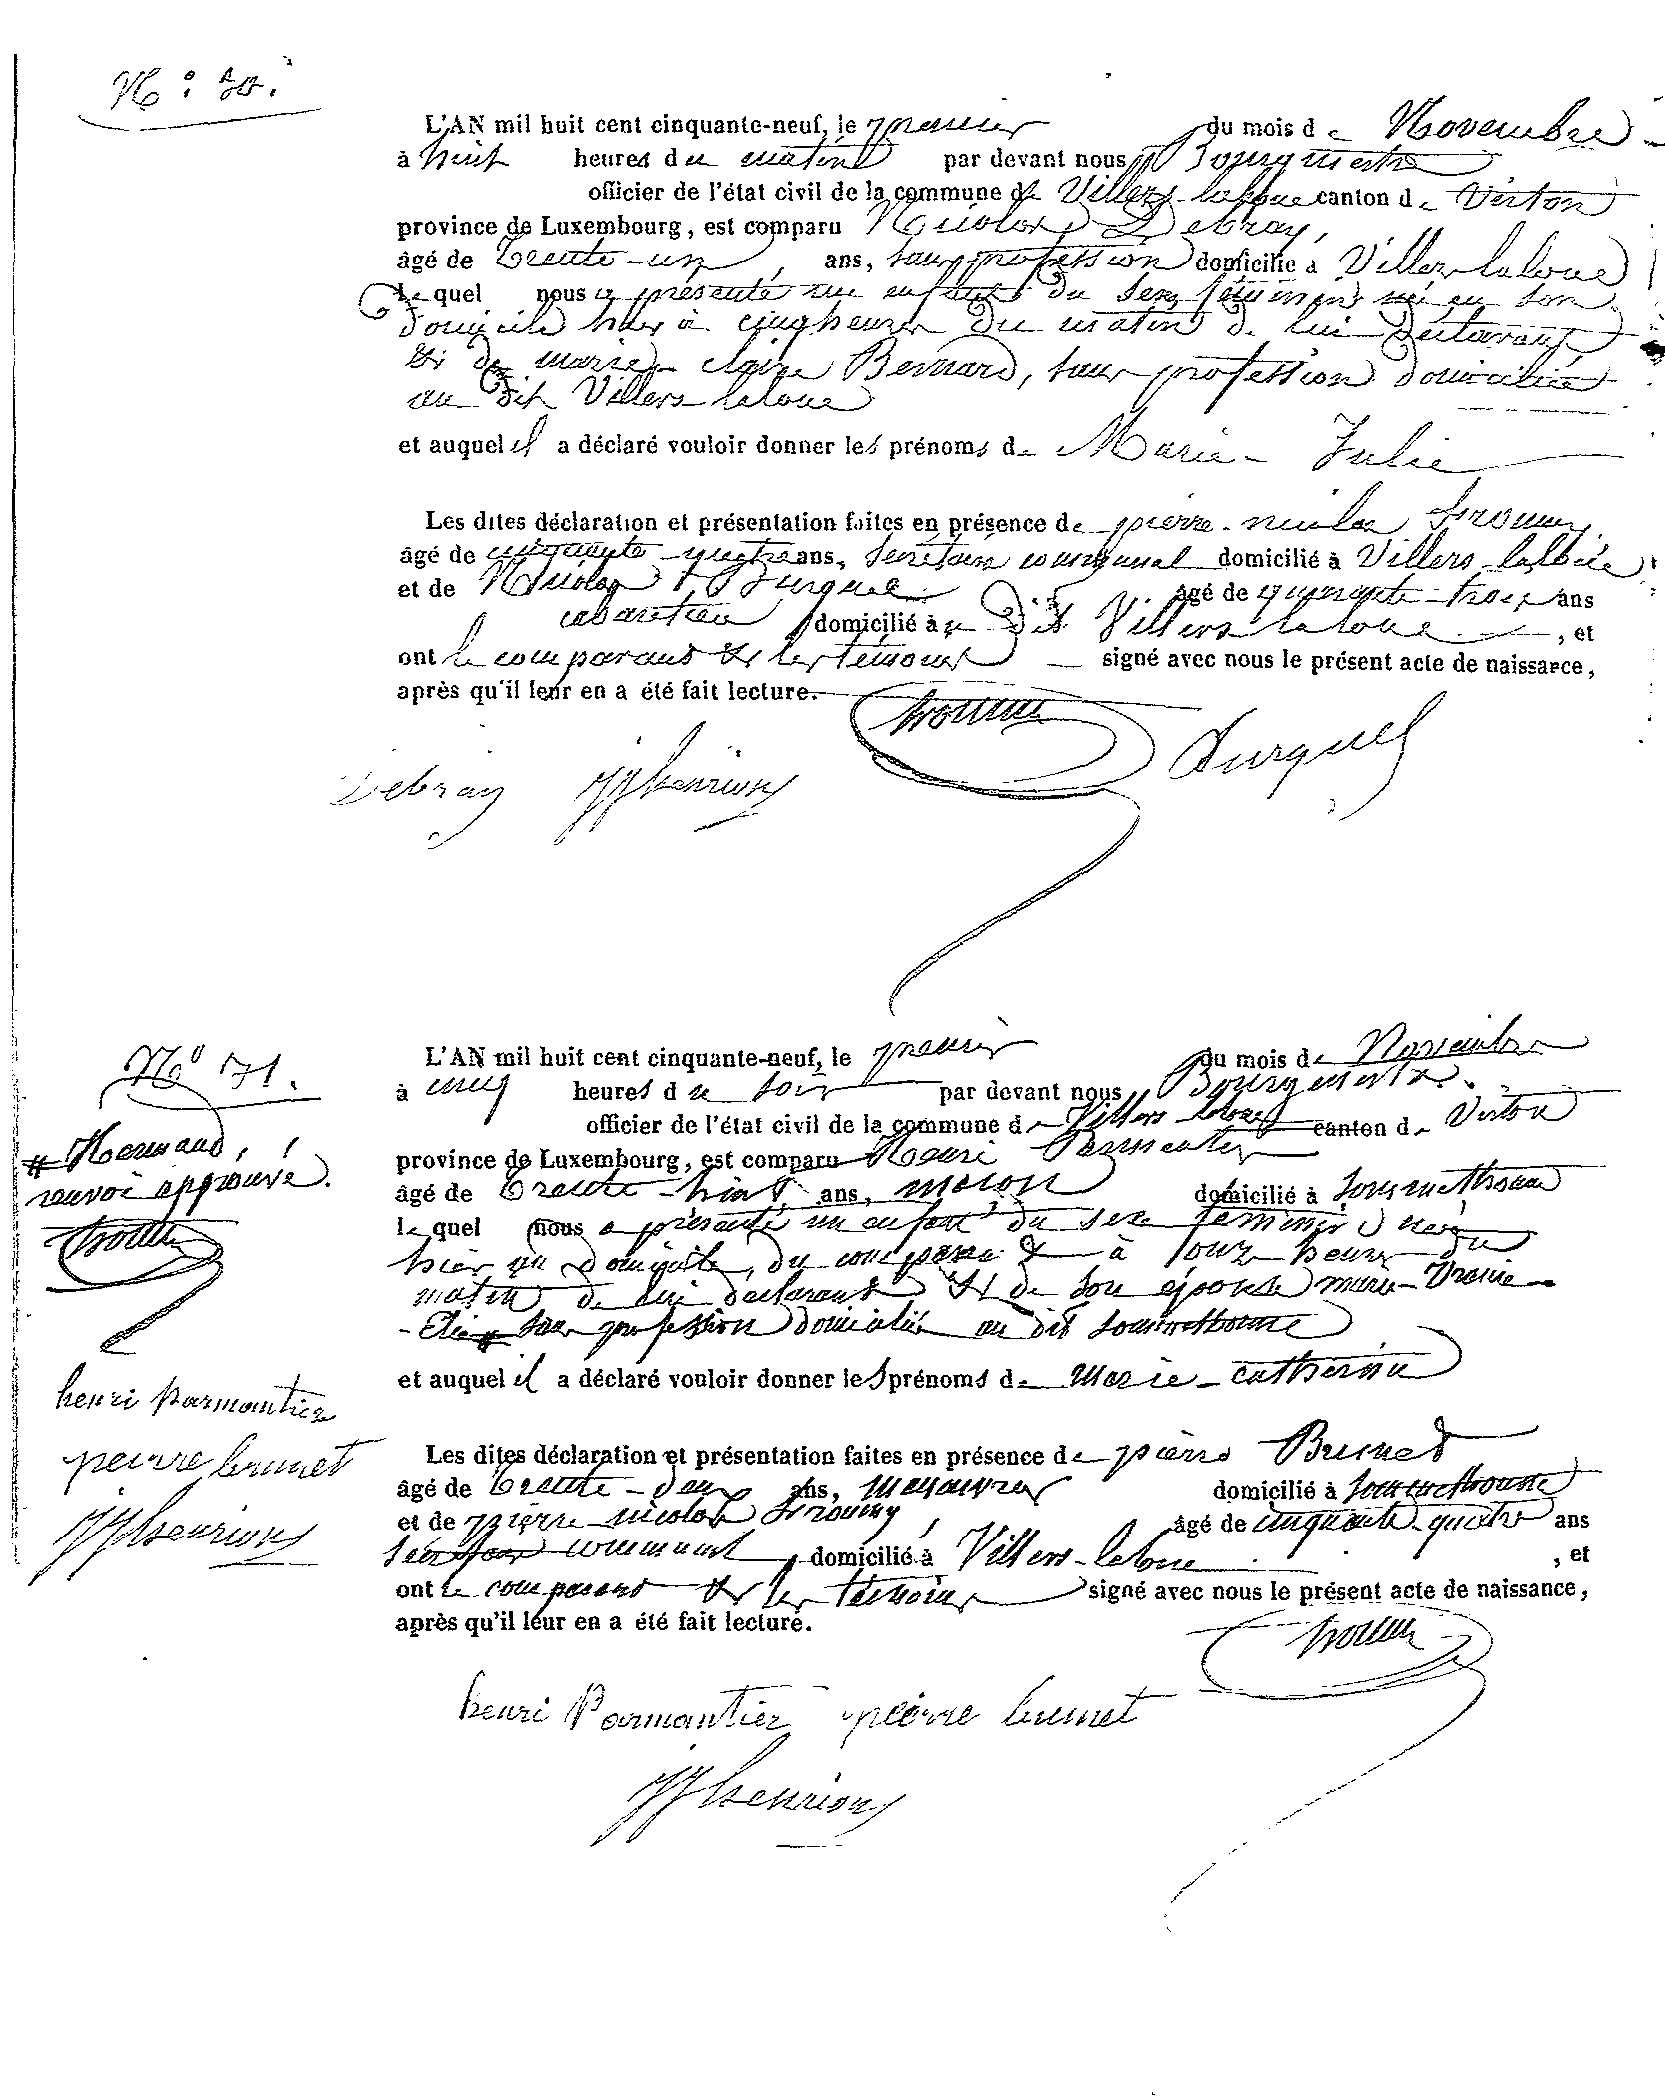 N°: 30.
L'AN mil huit cent cinquante-neuf, le premier du mois de Novembre
à huit heures du matin par devant nous Bourgmestre
officier de l'état civil de la commune de Villers-laloue canton de Virton
province de Luxembourg, est comparu Nicolas Debray,
âgé de Trente-un ans, sans profession domicilié à Villers laloue
le quel nous a présenté un enfant du sexe féminin né en son
domicile hier à cinq heures du matin de lui déclarant
et de marie-claire Bernard, sans profession domiciliée
au dit Villers laloue
et auquel il a déclaré vouloir donner les prénoms de Marie-Julie
Les dites déclaration et présentation faites en présence de pierre-nicolas
âgé de cinquante-quatre ans, secrétaire communal domicilié à Villers-laloue
et de Nicolas Burquel âgé de quarante-trois ans
cabaretier domicilié à au dit Villers laloue, et
ont le comparant et les témoins signé avec nous le présent acte de naissance,
après qu'il leur en a été fait lecture.
Debray JJ henrion
N° 31.
L'AN mil huit cent cinquante-neuf, le premier du mois de Novembre
à cinq heures du soir par devant nous, Bourgmestre.
officier de l'état civil de la commune de Villers-laloue canton de Virton
province de Luxembourg, est comparu Henri Parmentier
âgé de Trente-huit ans, maçon domicilié à Sommethonne
le quel nous a présenté un enfant du sexe féminin née
hier au domicile du comparant à heures du
matin de lui déclarant et de son épouse marie-
sans profession domiciliée au dit Sommethonne
et auquel il a déclaré vouloir donner les prénoms de Marie-catherine
Les dites déclaration et présentation faites en présence de pierre Brunet
âgé de Trente-deux ans, manœuvre domicilié à Sommethonne
et de pierre-nicolas âgé de cinquante-quatre ans
secrétaire communal domicilié à Villers-laloue, et
ont le comparant et les témoins signé avec nous le présent acte de naissance,
après qu'il leur en a été fait lecture.
henri Parmantier peirre brunet
JJ henrion
# Hermand,
renvoi approuvé.
henri Parmantier
peirre brunet
JJ henrion